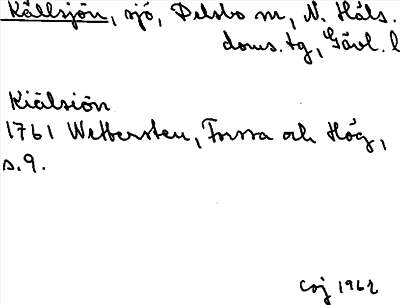 Källsjön, sjö, Delsbo sn, N. Häls.
doms. tg, Gävl. l
Kiälsiön
1761 Wettersten, Forssa och Hög,
s. 9.
CGJ 1962